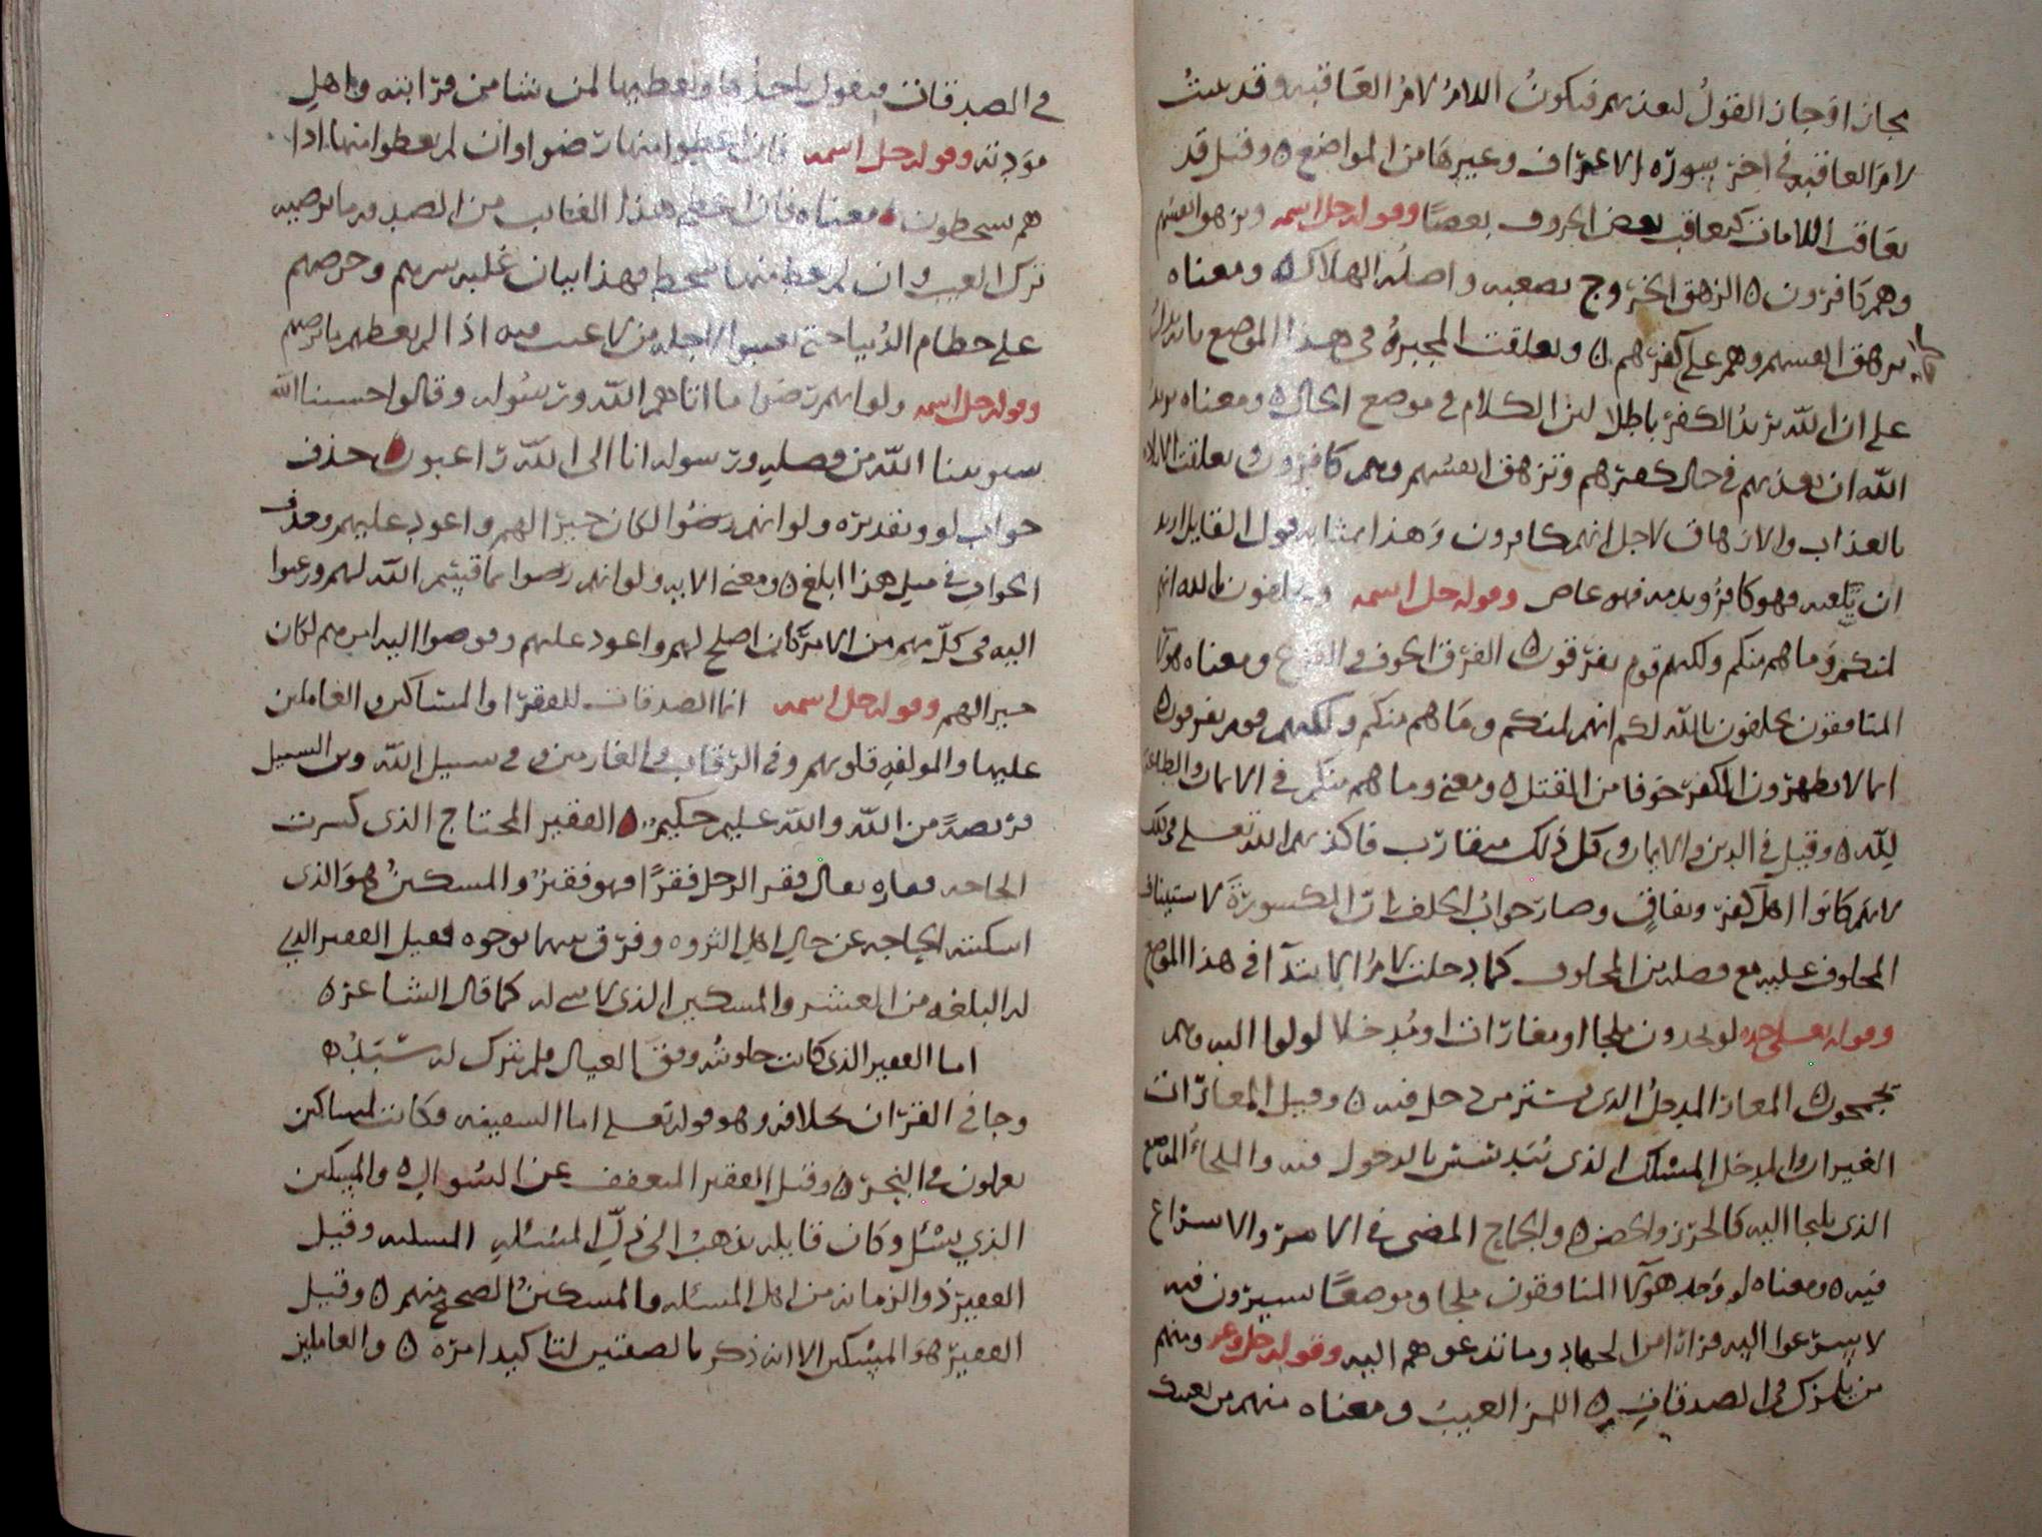 بجاز او جاز القول ليعذبهم فيكون اللام لام العاقبه وقد بينت
لام العاقبه في اخر سورة الاعراف وغيرها من المواضع ه وقيل قد
تعاقب اللامات كتعاقب بعض الحروف بعضا وقوله جل اسمه وتزهق انفسهم
وهم كافرون ه الزهق الخروج بصعبه واصله الهلاك ه ومعناه
تزهق انفسهم وهم على كفرهم ه وتعلقت المجبرة في هذا الموضع
على ان الله يريد الكفر باطلا لان الكلام في موضع الحال ه ومعناه يريد
الله ان يعذبهم في حال كفرهم وتزهق انفسهم وهم كافرون وتعلقت الارادة
بالعذاب والازهاق لاجل انهم كافرون وهذا بمثابه قول القايل اريد
ان وهو كافر وهو عاص وقوله جل اسمه ويحلفون بالله انهم
لمنكم وما هم منكم ولكنهم قوم يفرقون ه الفرق الخوف في الفزع ومعناه هولا
المنافقون يحلفون بالله لكم انهم لمنكم وما هم منكم ولكنهم قوم يفرقون ه
انما لا يظهرون الكفر خوفا من القتل ه ومعنى وما هم منكم في الايمان والطاعة
لله ه وقيل في الدين والايمان وكل ذلك متقارب فاكذبهم الله تعلى في ذلك
لانهم كانوا اهل كفر ونفاق وصار جواب الحلف بان المكسورة لاستيناف
المحلوف عليه مع فصله من المحلوف كما دخلت لام الابتدا في هذا الموضع
وقوله تعلى جده لو يجدون ملجا او مغارات او مدخلا لولوا اليه وهم
يجمحون ه المغار المدخل الذي يستتر من دخل فيه ه وقيل المغارات
الغيران والمدخل المسلك الذي يتدسس بالدخول فيه والملجا الموضع
الذي يلجا اليه كالحرز والحصن ه والجماح المضي في الامر والاسراع
فيه ه ومعناه لو وجد هولا المنافقون ملجا وموضعا يسيرون فيه
لاسرعوا اليه فرارا من الجهاد وما تدعوهم اليه وقوله جل وعز ومنهم
من يلمزك في الصدقات ه اللمز العيب ومعناه منهم من يعيبك
في الصدقات فيقول ياخذها ويعطيها لمن شا من قرابته واهل
مودته وقوله جل اسمه فان اعطوا منها رضوا وان لم يعطوا منها اذا
هم يسخطون ه معناه فان اعطي هذا العايب من الصدقه ما يرضيه
ترك العيب وان لم يعط منها سخط فهذا بيان غلبه شرهم وحرصهم
على حطام الدنيا حتى يعيبوا لاجله من لا عيب فيه اذا لم يعطهم ما يرضهم
وقوله جل اسمه ولو انهم رضوا ما اتاهم الله ورسوله وقالوا حسبنا الله
سيوتينا الله من فضله ورسوله انا الى الله راغبون ه حذف
جواب لو وتقديره ولو انهم رضوا لكان خيرا لهم واعود عليهم وحذف
الجواب في مثل هذا ابلغ ه ومعنى الايه ولو انهم رضوا بما قسم الله لهم ورغبوا
اليه في كل مهم من الامر كان اصلح لهم واعود عليهم وفوضوا اليه امرهم لكان
خيرا لهم وقوله جل اسمه انما الصدقات للفقرا والمساكين والعاملين
عليها والمولفه قلوبهم وفي الرقاب والغارمين وفي سبيل الله وبن السبيل
فريضة من الله والله عليم حكيم ه الفقير المحتاج الذي كسرت
الحاجه فقاره يقال فقر الرجل فقرا فهو فقير والمسكين هو الذي
اسكنته الحاجه عن حال اهل الثروه وفرق بينهما بوجوه فقيل الفقير الذي
له البلغه من العيش والمسكين الذي لا شي له كما قال الشاعر ه
اما الفقير الذي كانت حلوبته وفق العيال فلم يترك له سبد ه
وجا في القران بخلافه وهو قوله تعلى اما السفينه فكانت لمساكين
يعملون في البحر ه وقيل الفقير المتعفف عن السوال ه والمسكين
الذي يسئل وكان قايله يذهب الى ذل المسئله المسله وقيل
الفقير ذو الزمانه من اهل المسئله والمسكين الصحيح منهم ه وقيل
الفقير هو المسكين الا انه ذكر بالصفتين لتاكيد امره ه والعاملين